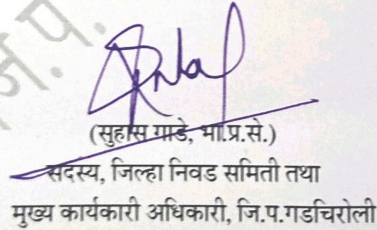 (सुहास गाडे, भा.प्र.से.)
सदस्य, जिल्हा निवड समिती तथा
मुख्य कार्यकारी अधिकारी, जि.प.गडचिरोली